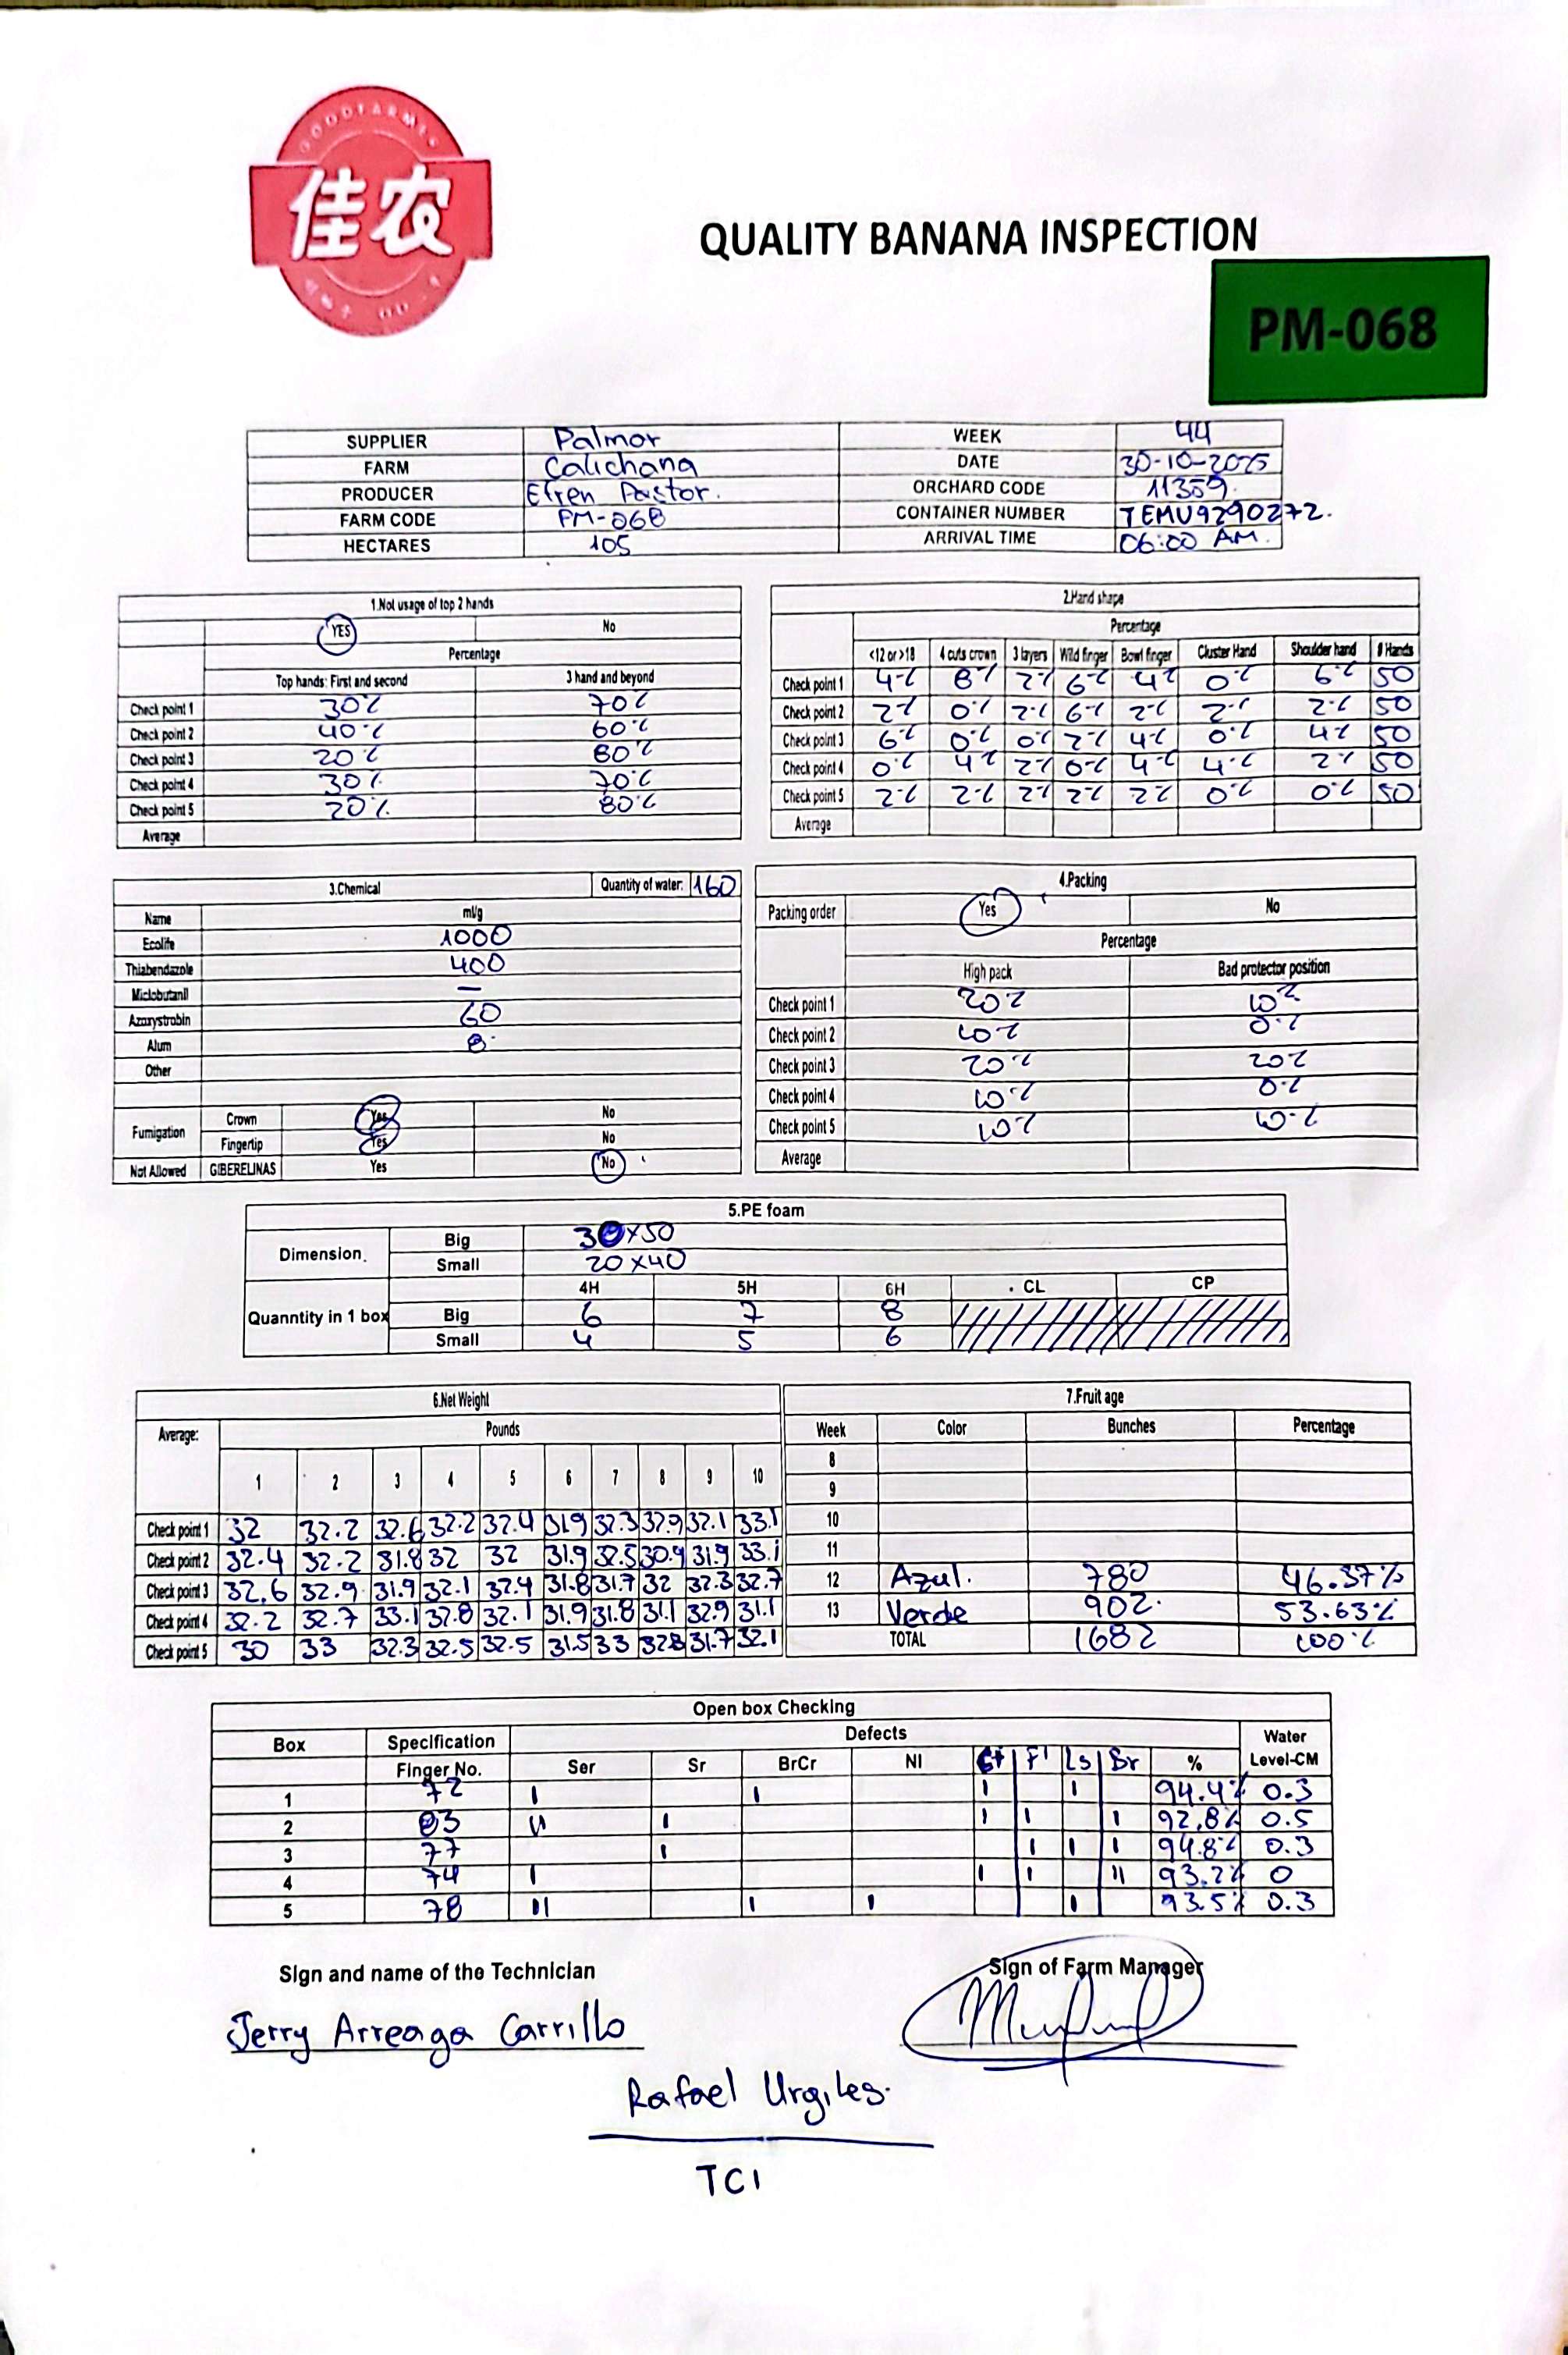 GOODFARMER
佳农
QUALITY BANANA INSPECTION
PM-068
SUPPLIER Palmor WEEK 44
FARM Calichana DATE 30-10-2025
PRODUCER Efren Pastor. ORCHARD CODE 11359.
FARM CODE PM-068 CONTAINER NUMBER TEMU9290272.
HECTARES 105 ARRIVAL TIME 06:00 AM.
1.Not usage of top 2 hands
YES No
Percentage
Top hands: First and second 3 hand and beyond
Check point 1 30% 70%
Check point 2 40% 60%
Check point 3 20% 80%
Check point 4 30% 70%
Check point 5 20% 80%
Average
2.Hand shape
Percentage
<12 or >18 4 cuts crown 3 layers Wild finger Bowl finger Cluster Hand Shoulder hand # Hands
Check point 1 4% 8% 2% 6% 4% 0% 6% 50
Check point 2 2% 0% 2% 6% 2% 2% 2% 50
Check point 3 6% 0% 0% 2% 4% 0% 4% 50
Check point 4 0% 4% 2% 0% 4% 4% 2% 50
Check point 5 2% 2% 2% 2% 2% 0% 0% 50
Average
3.Chemical Quantity of water: 160
Name ml/g
Ecolife 1000
Thiabendazole 400
Miclobutanil —
Azoxystrobin 60
Alum 8
Other
Fumigation Crown Yes No
Fingertip Yes No
Not Allowed GIBERELINAS Yes No
4.Packing
Packing order Yes No
Percentage
High pack Bad protector position
Check point 1 20% 10%
Check point 2 10% 0%
Check point 3 20% 20%
Check point 4 10% 0%
Check point 5 10% 10%
Average
5.PE foam
Dimension. Big 30x50
Small 20x40
4H 5H 6H CL CP
Quanntity in 1 box Big 6 7 8
Small 4 5 6
6.Net Weight
Average: Pounds
1 2 3 4 5 6 7 8 9 10
Check point 1 32 32.2 32.6 32.2 32.4 31.9 32.3 32.9 32.1 33.1
Check point 2 32.4 32.2 31.8 32 32 31.9 32.5 30.9 31.9 33.1
Check point 3 32.6 32.9 31.9 32.1 32.4 31.8 31.7 32 32.3 32.7
Check point 4 32.2 32.7 33.1 32.8 32.1 31.9 31.8 31.1 32.9 31.1
Check point 5 30 33 32.3 32.5 32.5 31.5 33 32.8 31.7 32.1
7.Fruit age
Week Color Bunches Percentage
8
9
10
11
12 Azul. 780 46.37%
13 Verde 902. 53.63%
TOTAL 1682 100%
Open box Checking
Box Specification Defects Water
Finger No. Ser Sr BrCr NI Fl Ls Br % Level-CM
1 72 I I I I 94.4% 0.3
2 83 II I I I I 92.8% 0.5
3 77 I I I I 94.8% 0.3
4 74 I I I II 93.2% 0
5 78 II I I I 93.5% 0.3
Sign and name of the Technician Sign of Farm Manager
Jerry Arreaga Carrillo
Rafael Urgiles.
TCI